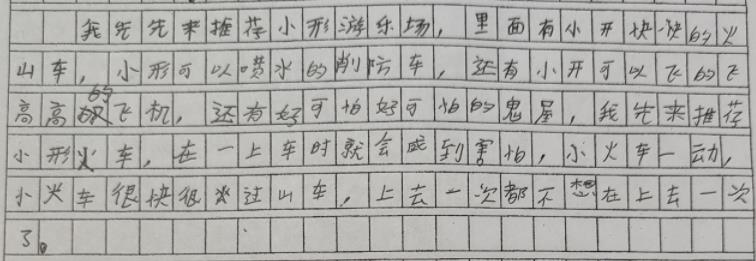 我先先来推荐小形游乐场，里面有小开快快的火
山车，小形可以喷水的削防车，还有小开可以飞的飞
高高的飞机，还有好可怕好可怕的鬼屋，我先来推荐
小形火车，在一上车时就会感到害怕，小火车一动，
小火车很快很火过山车，上去一次都不想在上去一次
了。